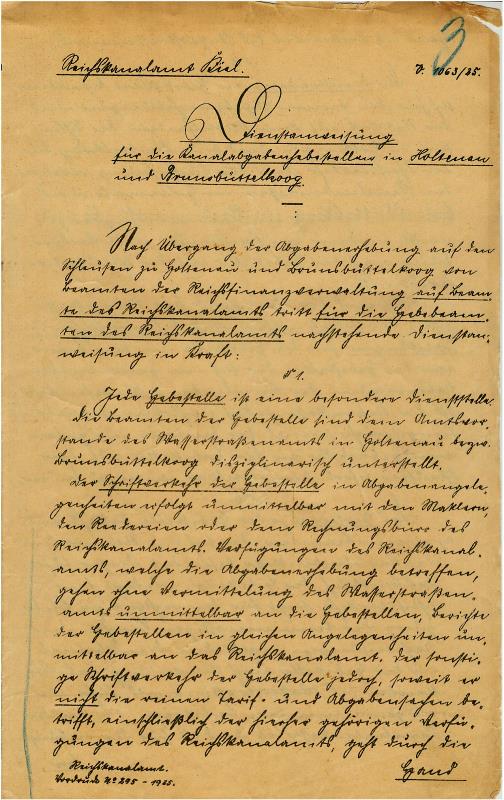 3
Reichskanalamt Kiel.
J. 1063/25.
Dienstanweisung
für die Kanalabgabenhebestellen in Holtenau
und Brunsbüttelkoog.
Nach Übergang der Abgabenerhebung auf den
Schleusen zu Holtenau und Brunsbüttelkoog von
Beamten der Reichsfinanzverwaltung auf Beam-
te des Reichskanalamts tritt für die Hebebeam-
ten des Reichskanalamts nachstehende Dienstan-
weisung in Kraft:
§ 1.
Jede Hebestelle ist eine besondere Dienststelle.
Die Beamten der Hebestelle sind dem Amtsvor-
stande des Wasserstraßenamts in Holtenau bezw.
Brunsbüttelkoog disziplinarisch unterstellt.
Der Schriftverkehr der Hebestelle in Abgabenangele-
genheiten erfolgt unmittelbar mit den Maklern,
den Reedereien oder dem Rechnungsbüro des
Reichskanalamts. Verfügungen des Reichskanal-
amts, welche die Abgabenerhebung betreffen,
gehen ohne Vermittelung des Wasserstraßen-
amts unmittelbar an die Hebestellen, Berichte
der Hebestellen in gleichen Angelegenheiten un-
mittelbar an das Reichskanalamt. Der sonsti-
ge Schriftverkehr der Hebestelle jedoch, soweit er
nicht die reinen Tarif- und Abgabensachen be-
trifft, einschließlich der hierher gehörigen Verfü-
gungen des Reichskanalamts, geht durch die
Hand
Reichskanalamt.
Vordruck No 295 - 1925.